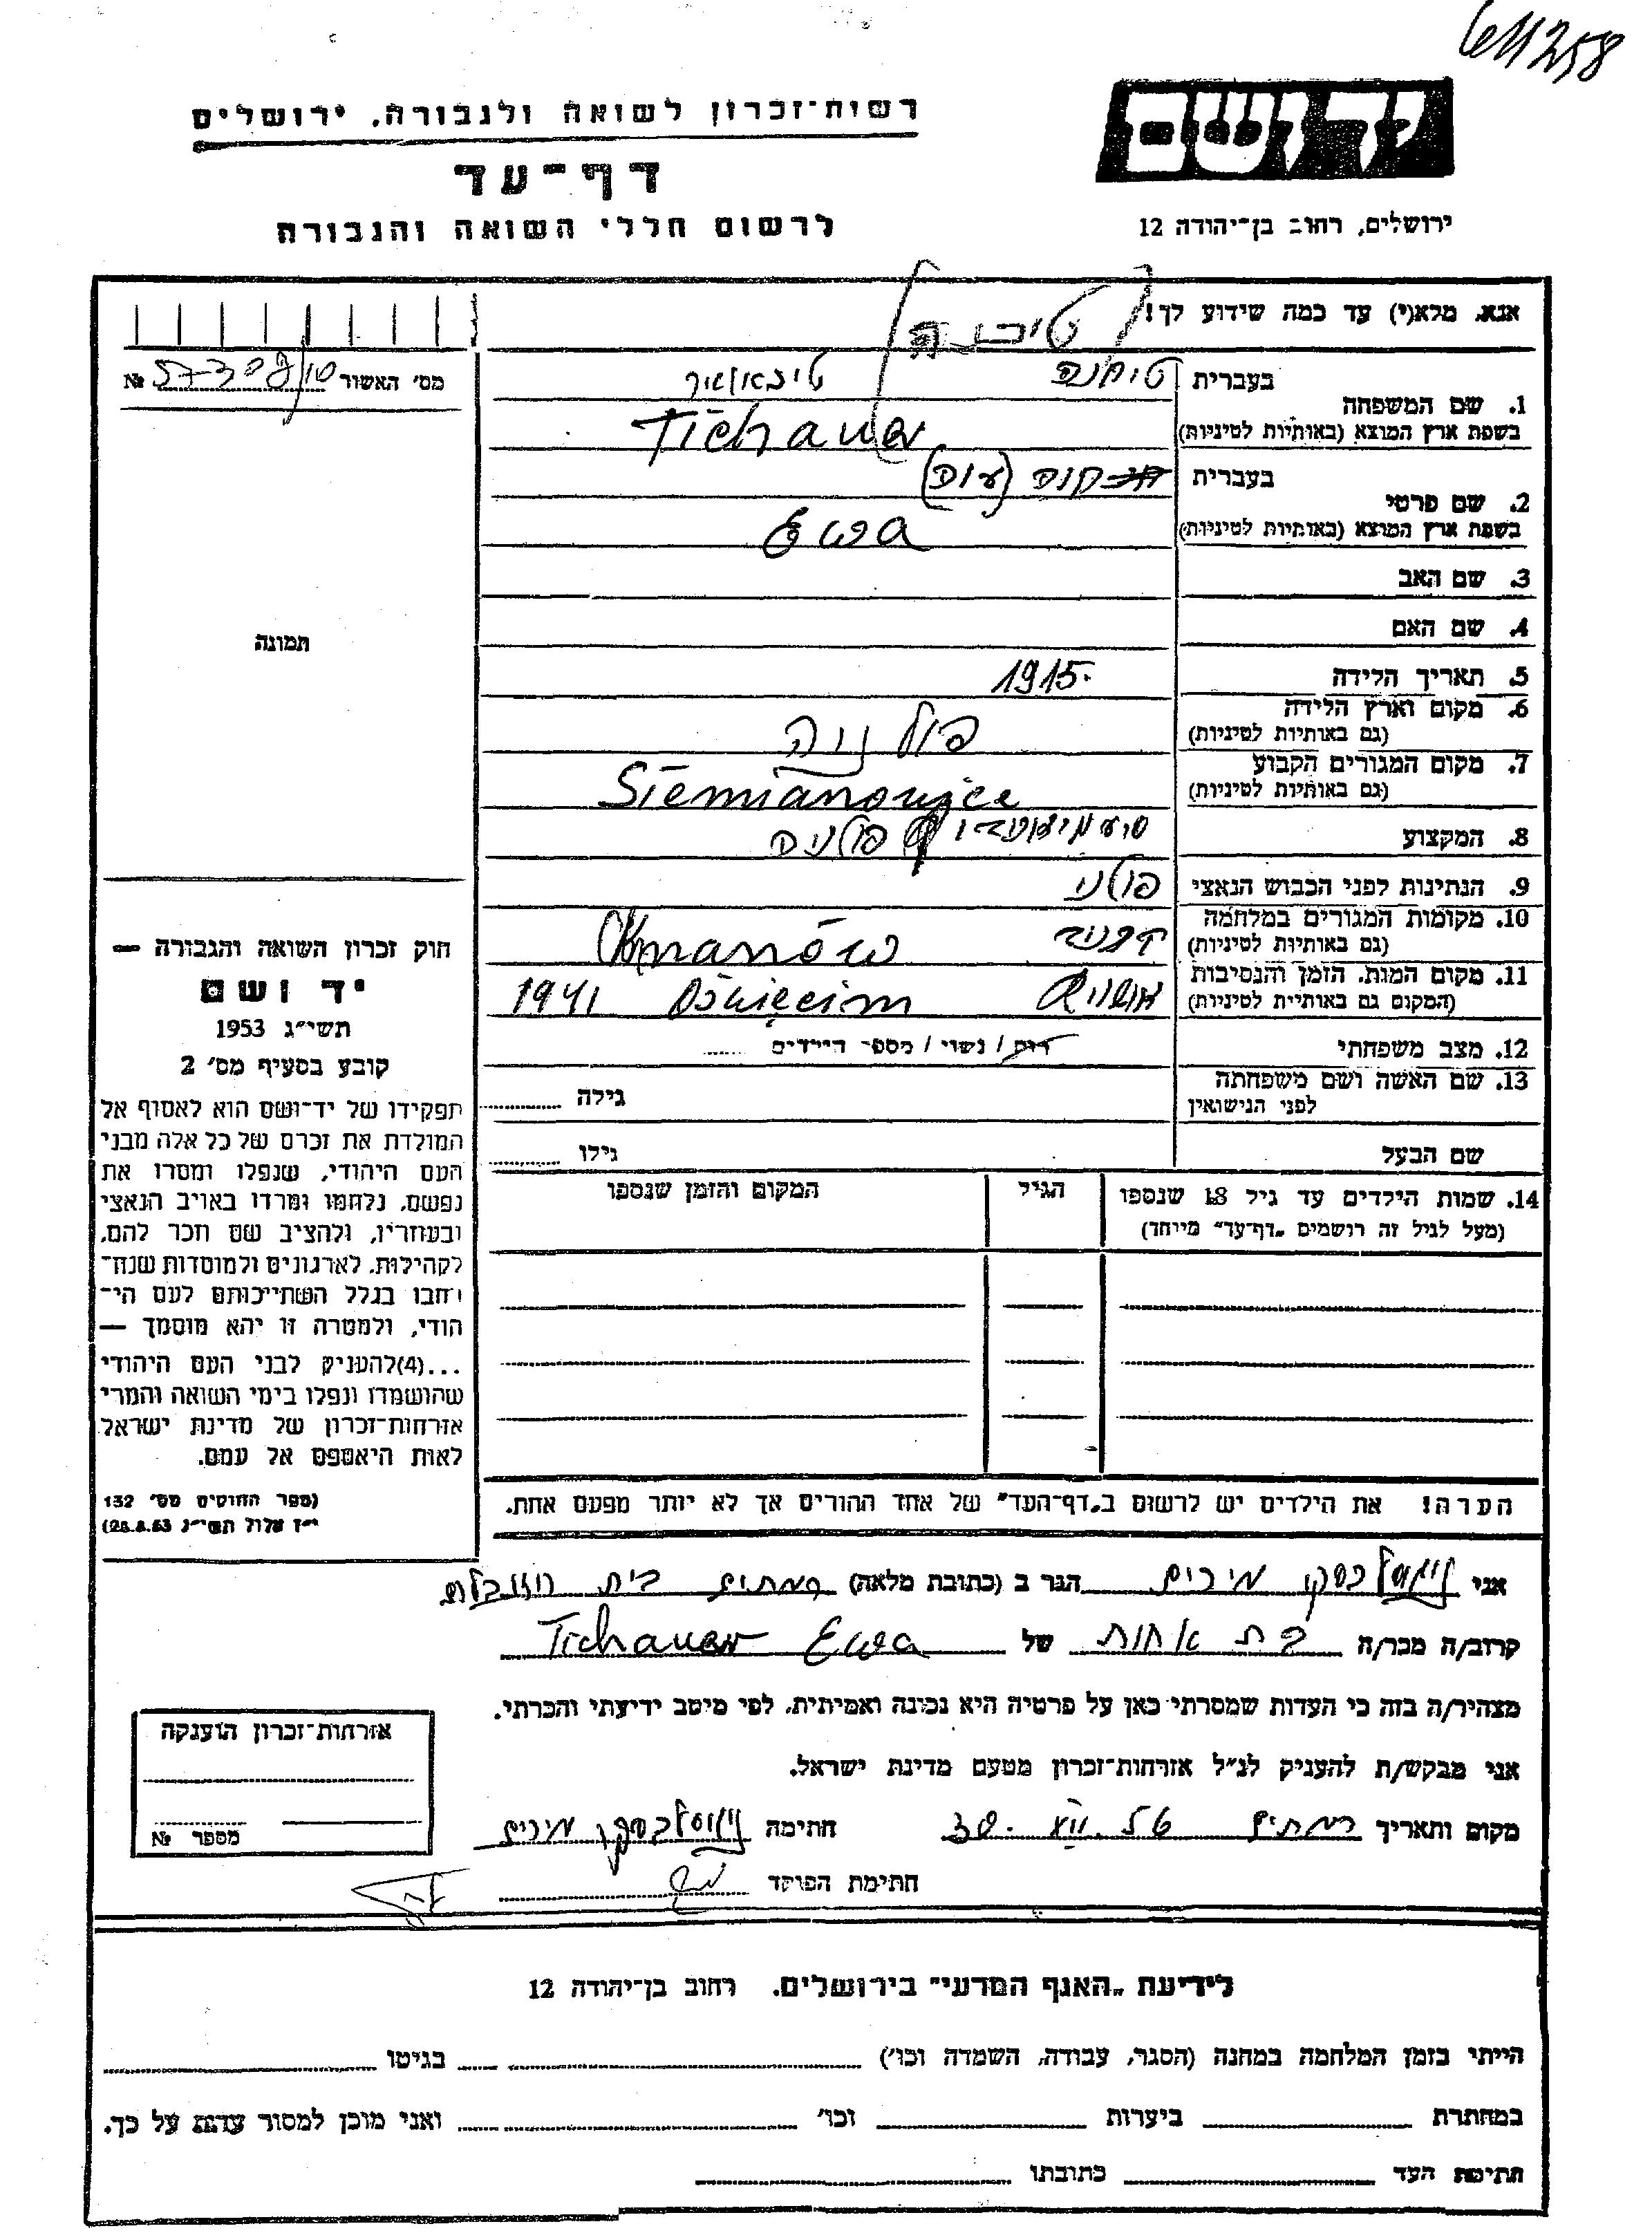 611258
רשות־זכרון לשואה ולגבורה, ירושלים
דף־עד
לרשום חללי השואה והגבורה
יד ושם
ירושלים, רחוב בן־יהודה 12
אנא, מלא(י) עד כמה שידוע לך!
מס' האשור №
1. שם המשפחה
בעברית
בשפת ארץ המוצא (באותיות לטיניות)
Tichauer
2. שם פרטי
בעברית
בשפת ארץ המוצא (באותיות לטיניות)
Ewa
3. שם האב
4. שם האם
תמונה
5. תאריך הלידה 1915.
6. מקום וארץ הלידה
(גם באותיות לטיניות)
פולניה
7. מקום המגורים הקבוע
(גם באותיות לטיניות)
Siemianowice
8. המקצוע
פולניה
9. הנתינות לפני הכבוש הנאצי פולני
10. מקומות המגורים במלחמה
(גם באותיות לטיניות)
Chrzanów
11. מקום המות, הזמן והנסיבות
(המקום גם באותיות לטיניות)
Oświęcim 1941
12. מצב משפחתי רוק / נשוי / מספר הילדים
13. שם האשה ושם משפחתה
לפני הנישואין
גילה
שם הבעל גילו
14. שמות הילדים עד גיל 18 שנספו
(מעל לגיל זה רושמים „דף־עד" מיוחד)
הגיל
המקום והזמן שנספו
הערה! את הילדים יש לרשום ב„דף־העד" של אחד ההורים אך לא יותר מפעם אחת.
חוק זכרון השואה והגבורה —
יד ושם
תשי"ג 1953
קובע בסעיף מס' 2
תפקידו של יד־ושם הוא לאסוף אל
המולדת את זכרם של כל אלה מבני
העם היהודי, שנפלו ומסרו את
נפשם, נלחמו ומרדו באויב הנאצי
ובעוזריו, ולהציב שם וזכר להם,
לקהילות, לארגונים ולמוסדות שנח־
רבו בגלל השתייכותם לעם הי־
הודי, ולמטרה זו יהא מוסמך —
...(4)להעניק לבני העם היהודי
שהושמדו ונפלו בימי השואה והמרי
אזרחות־זכרון של מדינת ישראל
לאות היאספם אל עמם.
(ספר החוקים מס' 132
י"ז אלול תשי"ג 28.8.53)
אני מרים הגר ב (כתובת מלאה) רמתים בית
קרוב/ה מכר/ה בת אחות של Tichauer Ewa
מצהיר/ה בזה כי העדות שמסרתי כאן על פרטיה היא נכונה ואמיתית, לפי מיטב ידיעתי והכרתי.
אני מבקש/ת להעניק לנ"ל אזרחות־זכרון מטעם מדינת ישראל.
מקום ותאריך רמתים חתימה מרים
חתימת הפוקד
אזרחות־זכרון הוענקה
מספר №
לידיעת „האגף המדעי" בירושלים, רחוב בן־יהודה 12
הייתי בזמן המלחמה במחנה (הסגר, עבודה, השמדה וכו') בגיטו
במחתרת ביערות וכו' ואני מוכן למסור עדות על כך.
חתימת העד כתובתו